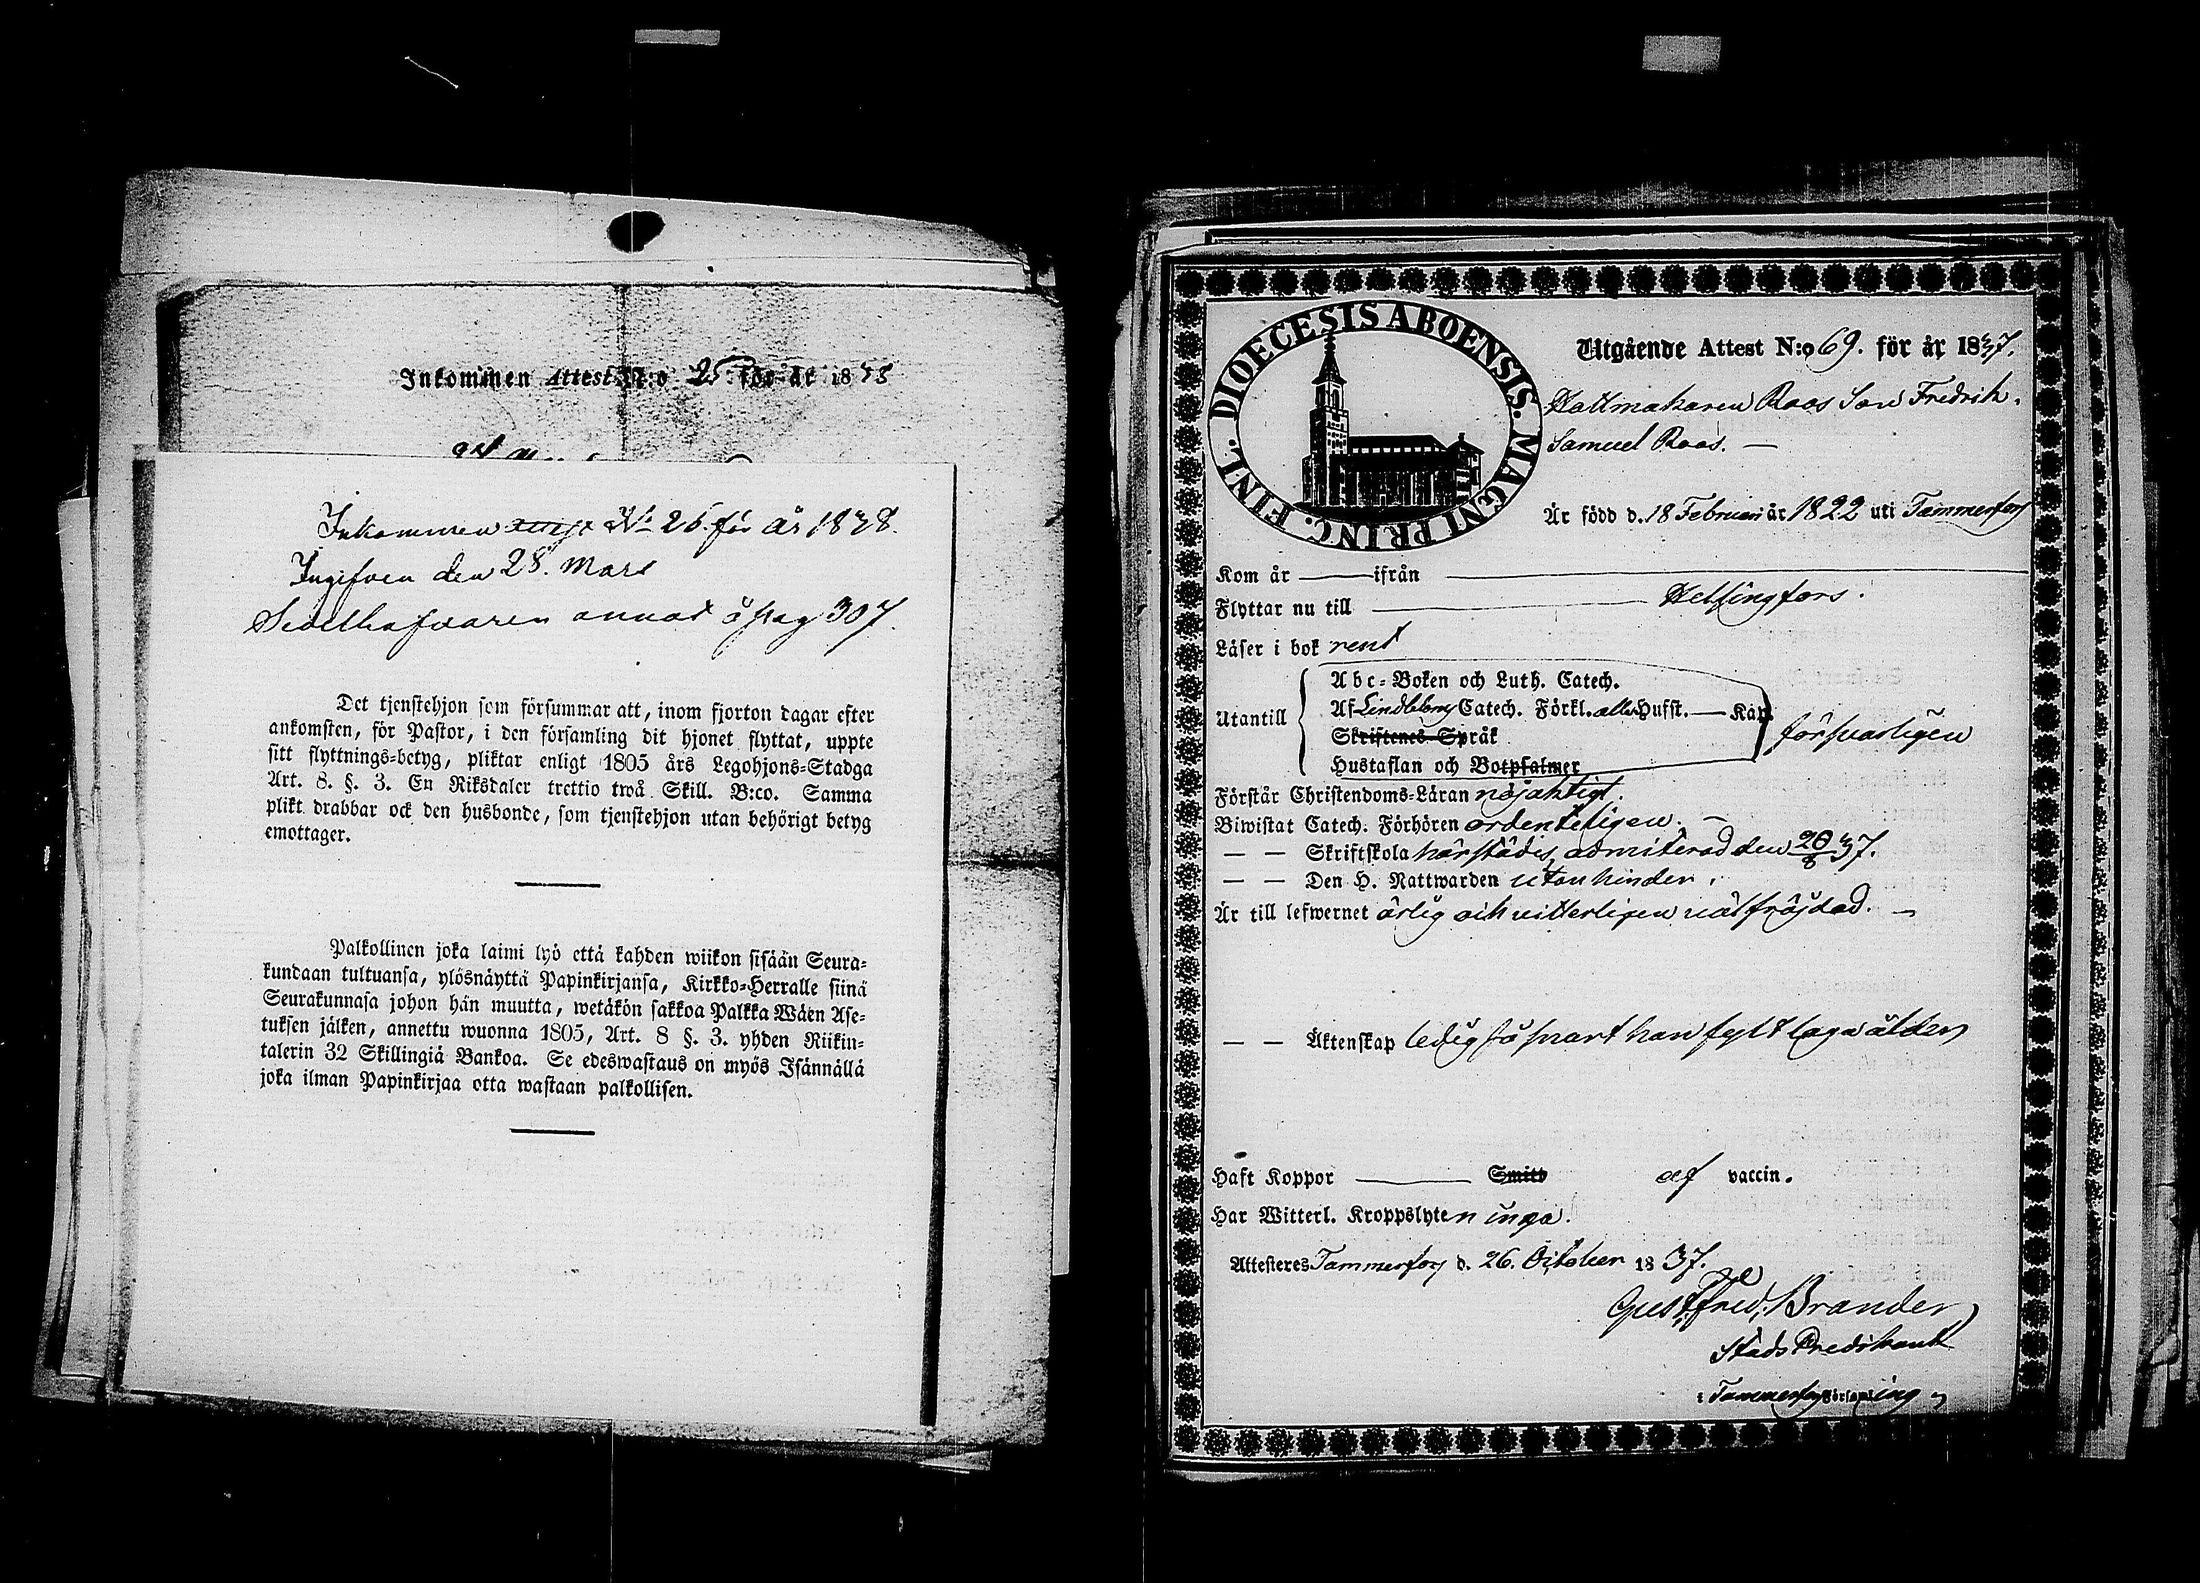 Inkommen Attest N:o 25 för år 1838
Inkommen attest No 26 för år 1838.
Ingifven den 28. Mars
Sedelhafvaren annot å pag 307.
Det tjenstehjon som försummar att, inom fjorton dagar efter
ankomsten, för Pastor, i den församling dit hjonet flyttat, uppte
sitt flyttnings-betyg, pliktar enligt 1805 års Legohjons-Stadga
Art. 8. §. 3. En Riksdaler trettio twå Skill. B:co. Samma
plikt drabbar ock den husbonde, som tjenstehjon utan behörigt betyg
emottager.
Palkollinen joka laimi lyö että kahden wiikon sisään Seura-
kundaan tultuansa, ylösnäyttä Papinkirjansa, Kirkko-Herralle siinä
Seurakunnasa johon hän muutta, wetäkön sakkoa Palkka Wäen Ase-
tuksen jälken, annettu wuonna 1805, Art. 8 §. 3. yhden Riikin-
talerin 32 Skillingiä Bankoa. Se edeswastaus on myös Isännällä
joka ilman Papinkirjaa otta wastaan palkollisen.
FINL. DIOECESIS ABOENSIS. MAGNI PRINC.
Utgående Attest N:o 69. för år 1837.
Hattmakaren Roos Son Fredrik
Samuel Roos. —
Är född d. 18 Februari år 1822 uti Tammerfors
Kom år — ifrån —
Flyttar nu till — Helsingfors.
Läser i bok rent
Utantill
Abc-Boken och Luth. Catech.
Af Lindebergs Catech. Förkl. alla Hufst. — Kap.
Skriftenes Språk
Hustaflan och Botpsalmer
försvarligen
Förstår Christendoms-Läran nöjaktigt.
Biwistat Catech. Förhören ordenteligen. —
— — Skriftskola härstädes, admitterad den 20/8 37.
— — Den H. Nattwarden utan hinder.
Är till lefwernet ärlig och vitterligen välfrejdad. —
— — Äktenskap ledig så snart han fylt laga åldern
Haft Koppor — Smitt af vaccin.
Har Witterl. Kroppslyten inga.
Attesteres Tammerfors d. 26. October 1837.
Gust. Fred. Brander
Stads Predikant
i Tammerfors Församling